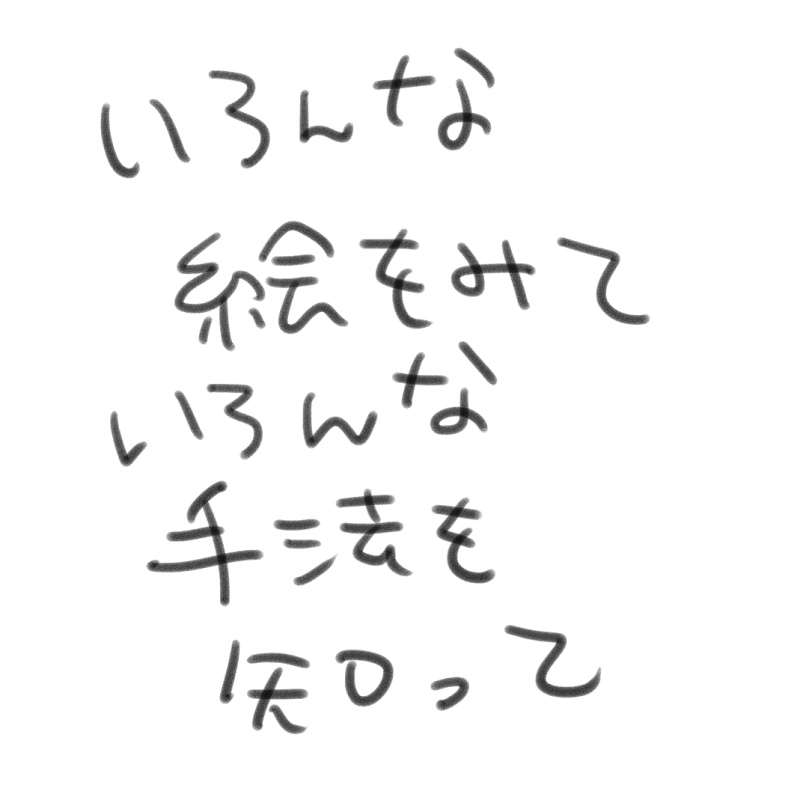 いろんな
絵をみて
いろんな
手法を
知って